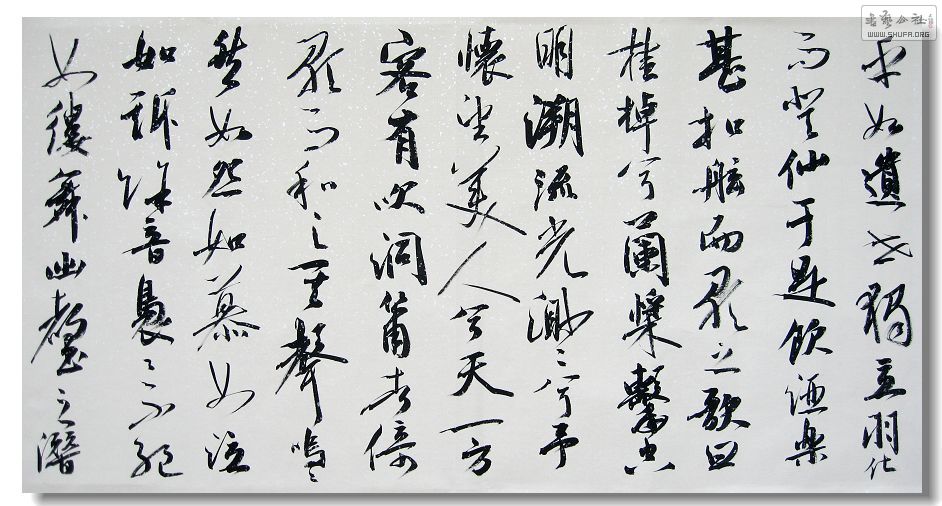 乎如遺世獨立羽化
而登仙于是飲酒樂
甚扣舷而歌之歌曰
桂棹兮蘭槳擊空
明溯流光渺々兮予
懷望美人兮天一方
客有吹洞簫者倚
歌而和之其聲嗚々
然如怨如慕如泣
如訴餘音裊々不絕
如縷舞幽壑之潛
書藝公社
WWW.SHUFA.ORG